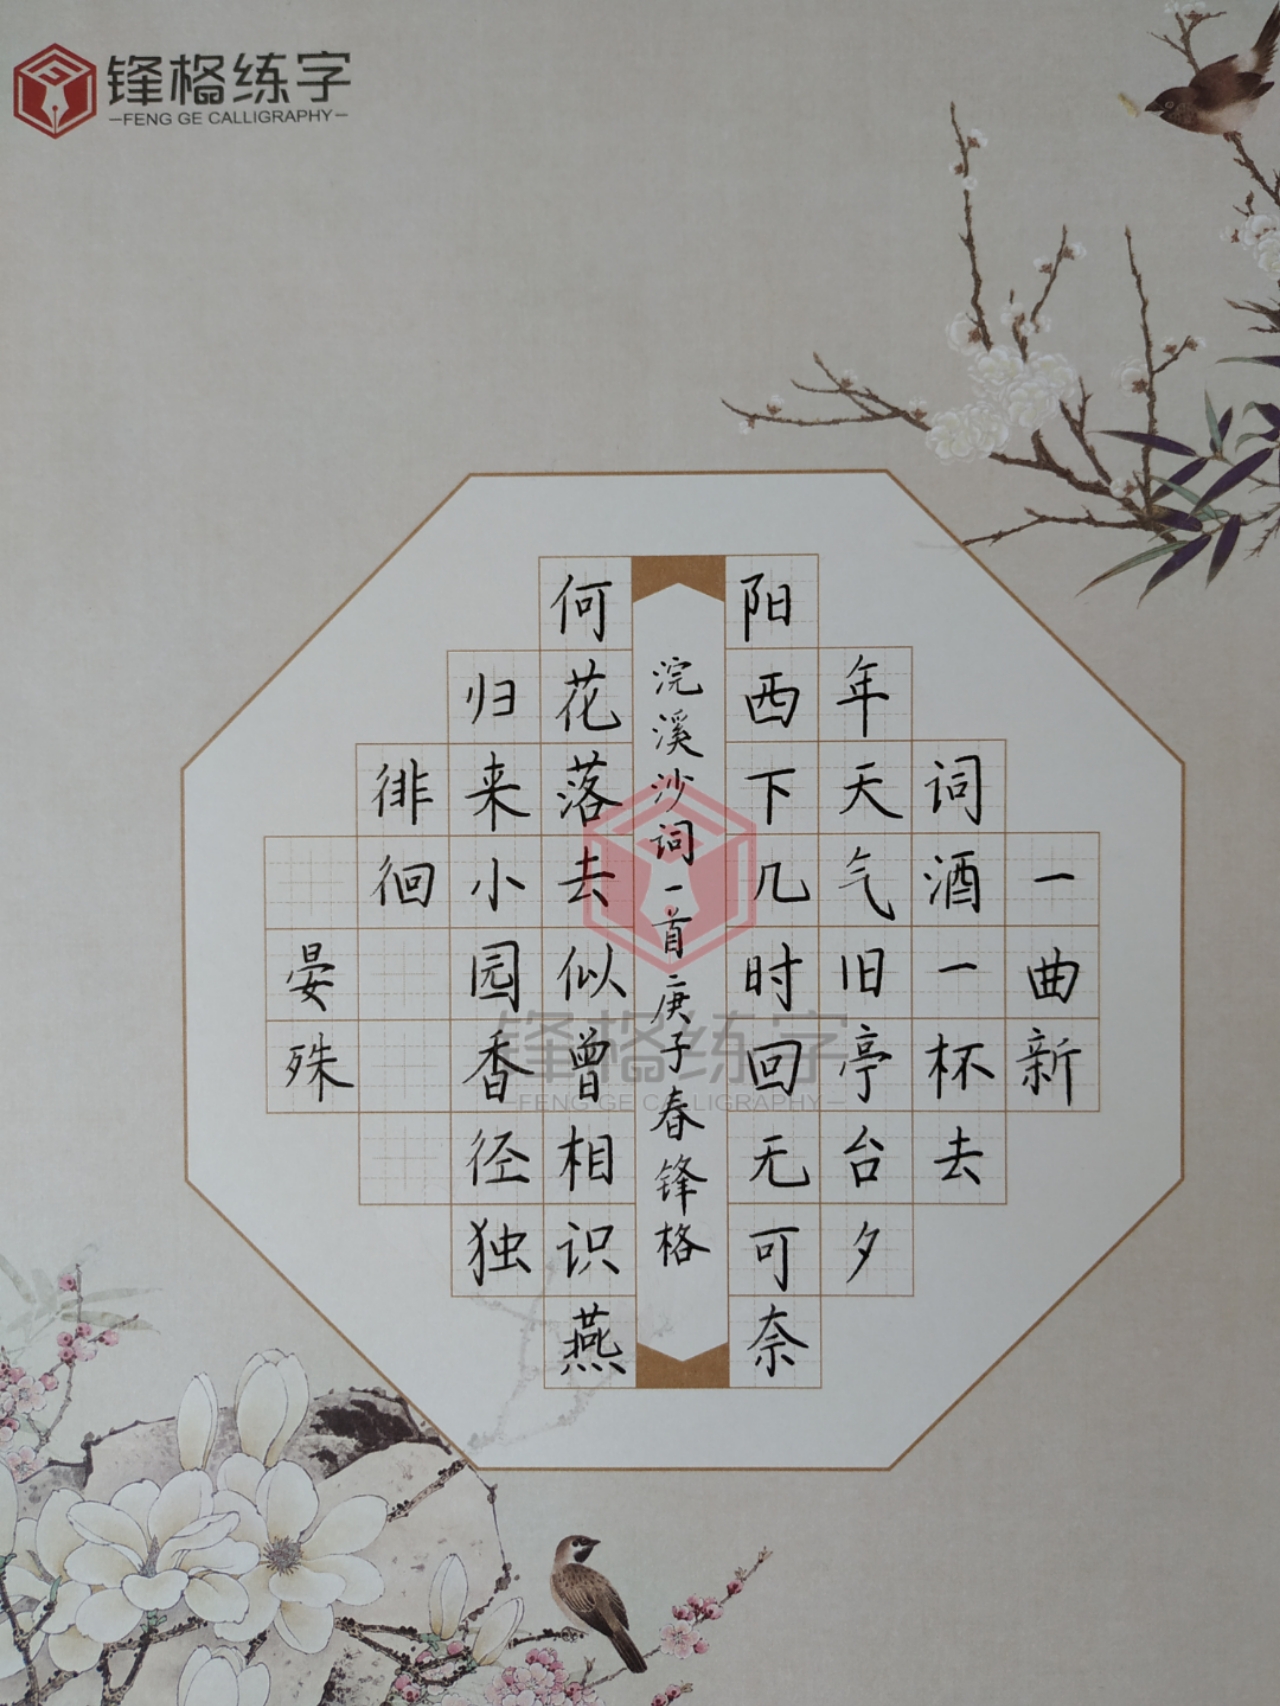 锋格练字
FENG GE CALLIGRAPHY
一曲新
词酒一杯去
年天气旧亭台夕
阳西下几时回无可奈
浣溪沙词一首庚子春锋格
何花落去似曾相识燕
归来小园香径独
徘徊
晏殊
锋格练字
FENG GE CALLIGRAPHY